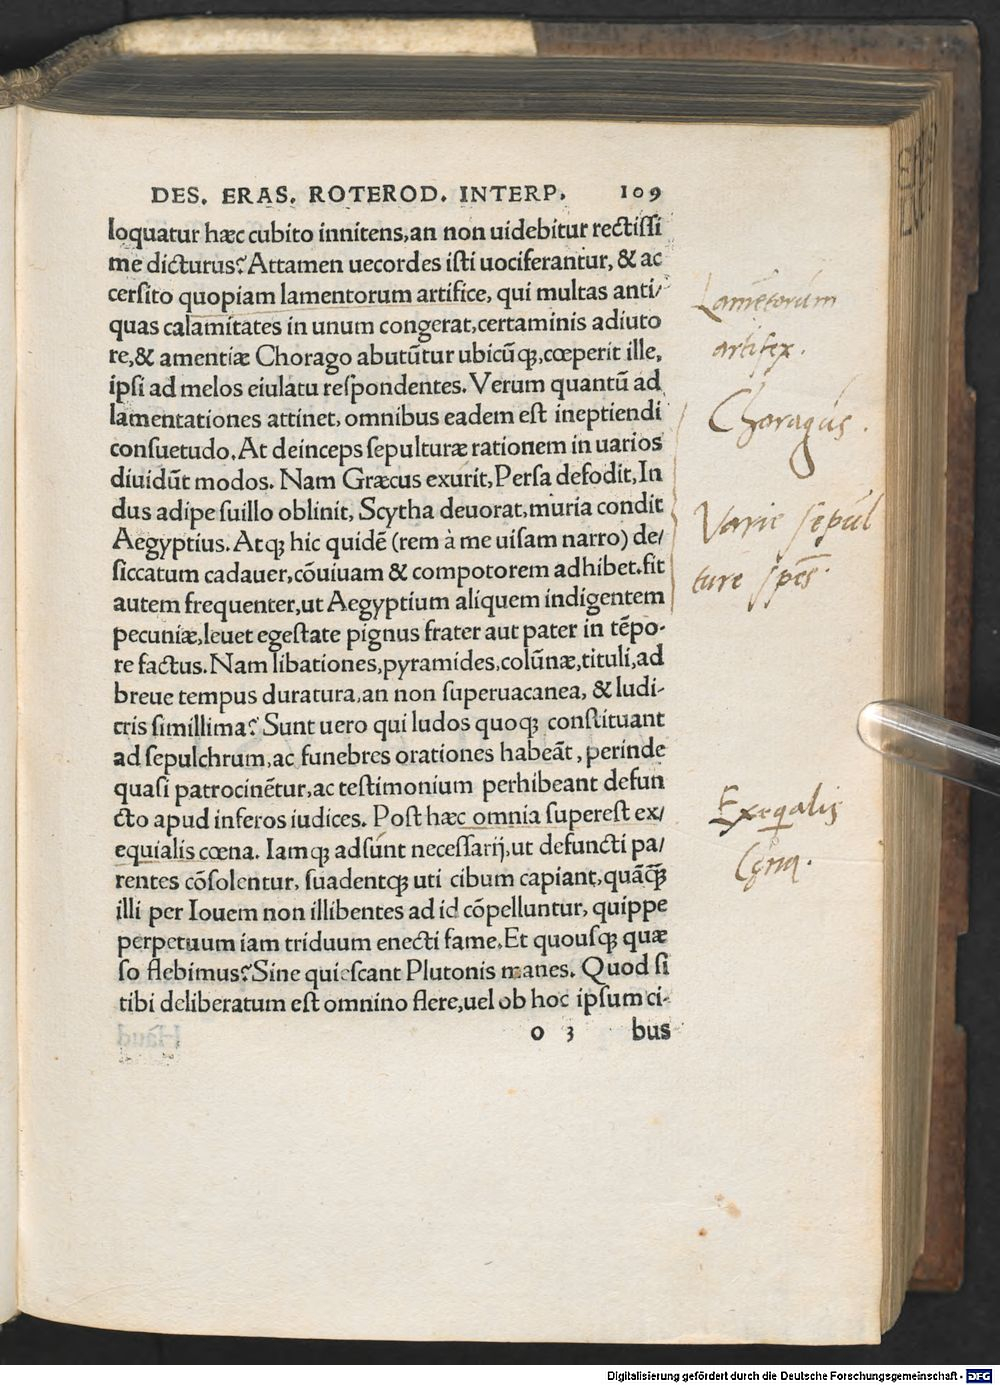 DES. ERAS. ROTEROD. INTERP. 109
loquatur hæc cubito innitens, an non uidebitur rectiſſi
me dicturus? Attamen uecordes iſti uociferantur, & ac
cerſito quopiam lamentorum artifice, qui multas anti/
quas calamitates in unum congerat, certaminis adiuto
re, & amentiæ Chorago abutũtur ubicũq;, cœperit ille,
ipſi ad melos eiulatu reſpondentes. Verum quantũ ad
lamentationes attinet, omnibus eadem eſt ineptiendi
conſuetudo. At deinceps ſepulturæ rationem in uarios
diuidũt modos. Nam Græcus exurit, Perſa defodit, In
dus adipe ſuillo oblinit, Scytha deuorat, muria condit
Aegyptius. Atq; hic quidẽ (rem à me uiſam narro) de/
ſiccatum cadauer, cõuiuam & compotorem adhibet. fit
autem frequenter, ut Aegyptium aliquem indigentem
pecuniæ, leuet egeſtate pignus frater aut pater in tẽpo-
re factus. Nam libationes, pyramides, colũnæ, tituli, ad
breue tempus duratura, an non ſuperuacanea, & ludi-
cris ſimillima? Sunt uero qui ludos quoq; conſtituant
ad ſepulchrum, ac funebres orationes habeãt, perinde
quaſi patrocinẽtur, ac teſtimonium perhibeant defun
cto apud inferos iudices. Poſt hæc omnia ſupereſt ex/
equialis cœna. Iamq; adſunt neceſſarij, ut defuncti pa/
rentes cõſolentur, ſuadentq; uti cibum capiant, quãq̃
illi per Iouem non illibentes ad id cõpelluntur, quippe
perpetuum iam triduum enecti fame. Et quouſq; quæ
ſo flebimus? Sine quieſcant Plutonis manes. Quod ſi
tibi deliberatum eſt omnino flere, uel ob hoc ipſum ci-
o 3 bus
Lamẽtorum
artifex.
Choragus.
Varie ſepul
ture ſpẽs.
Exeqialis
Cęna.
Digitalisierung gefördert durch die Deutsche Forschungsgemeinschaft - DFG